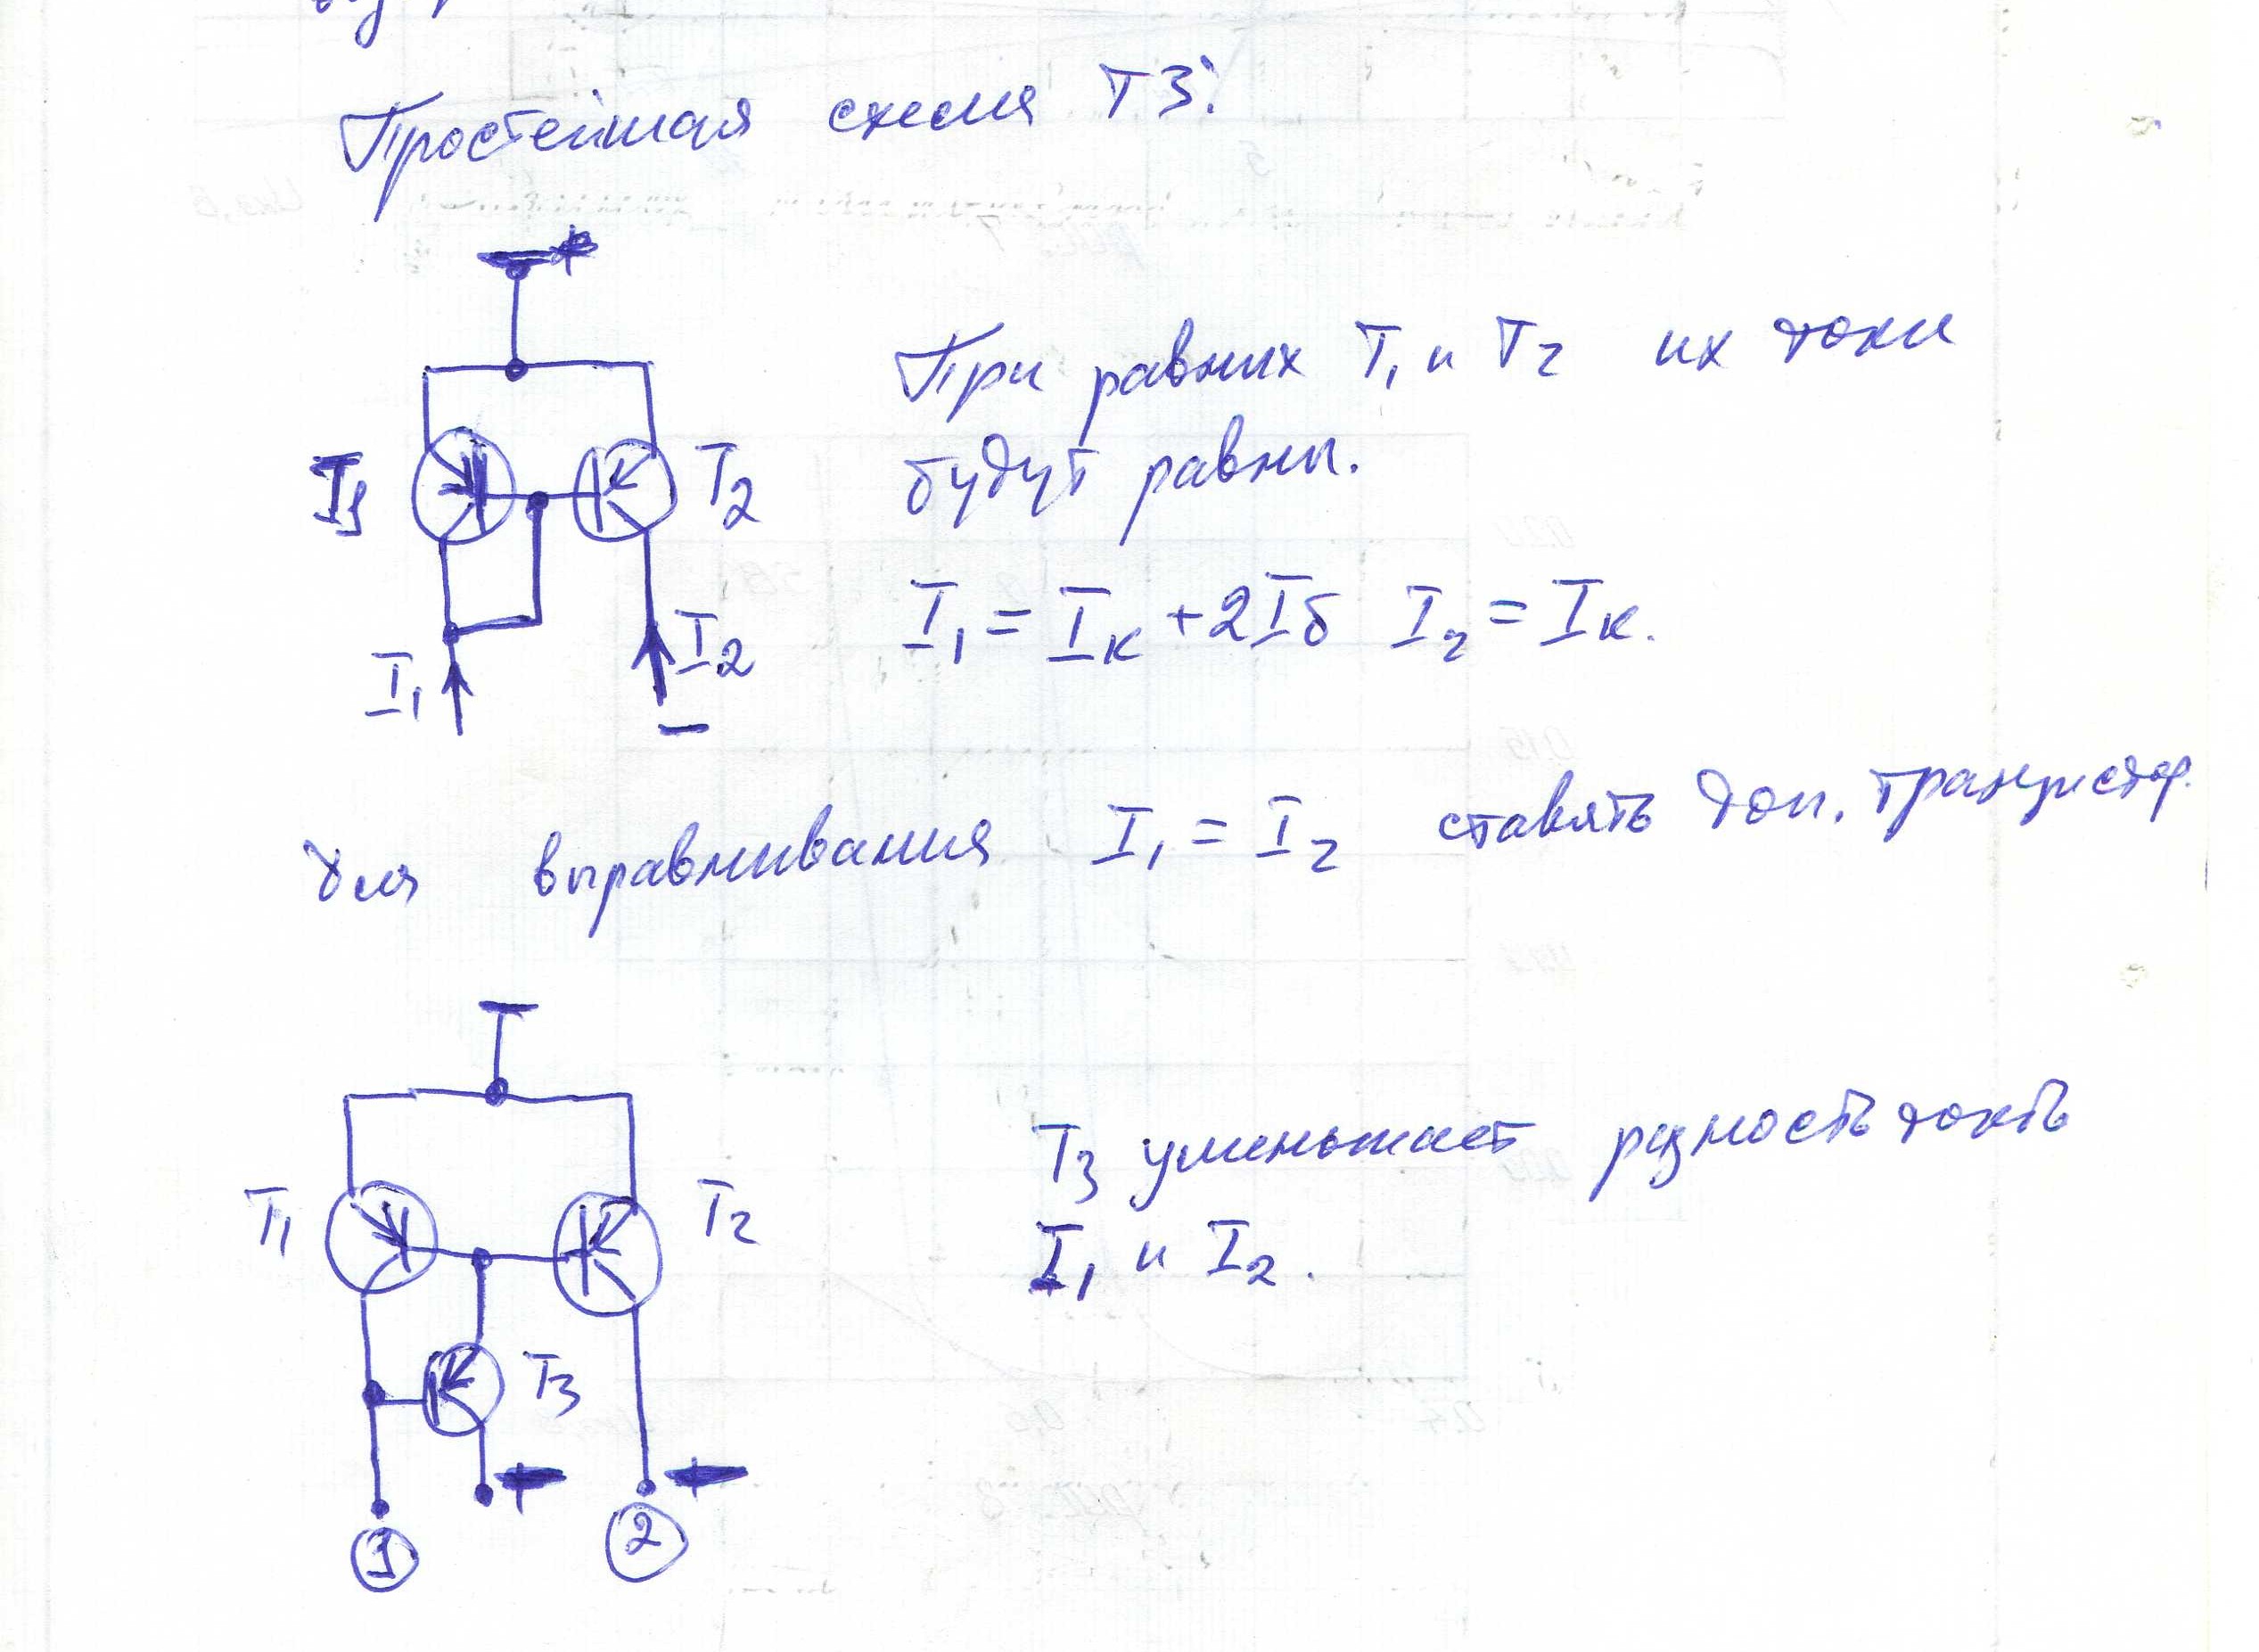 Простейшая схема ТЗ:
T1 T2
При равных T1 и T2 их токи
будут равны.
I1 = Iк + 2Iб I2 = Iк.
I1 I2
для выравнивания I1 = I2 ставять доп. транзистор.
T1 T2
T3 уменьшает разность токъ
I1 и I2.
T3
1 2